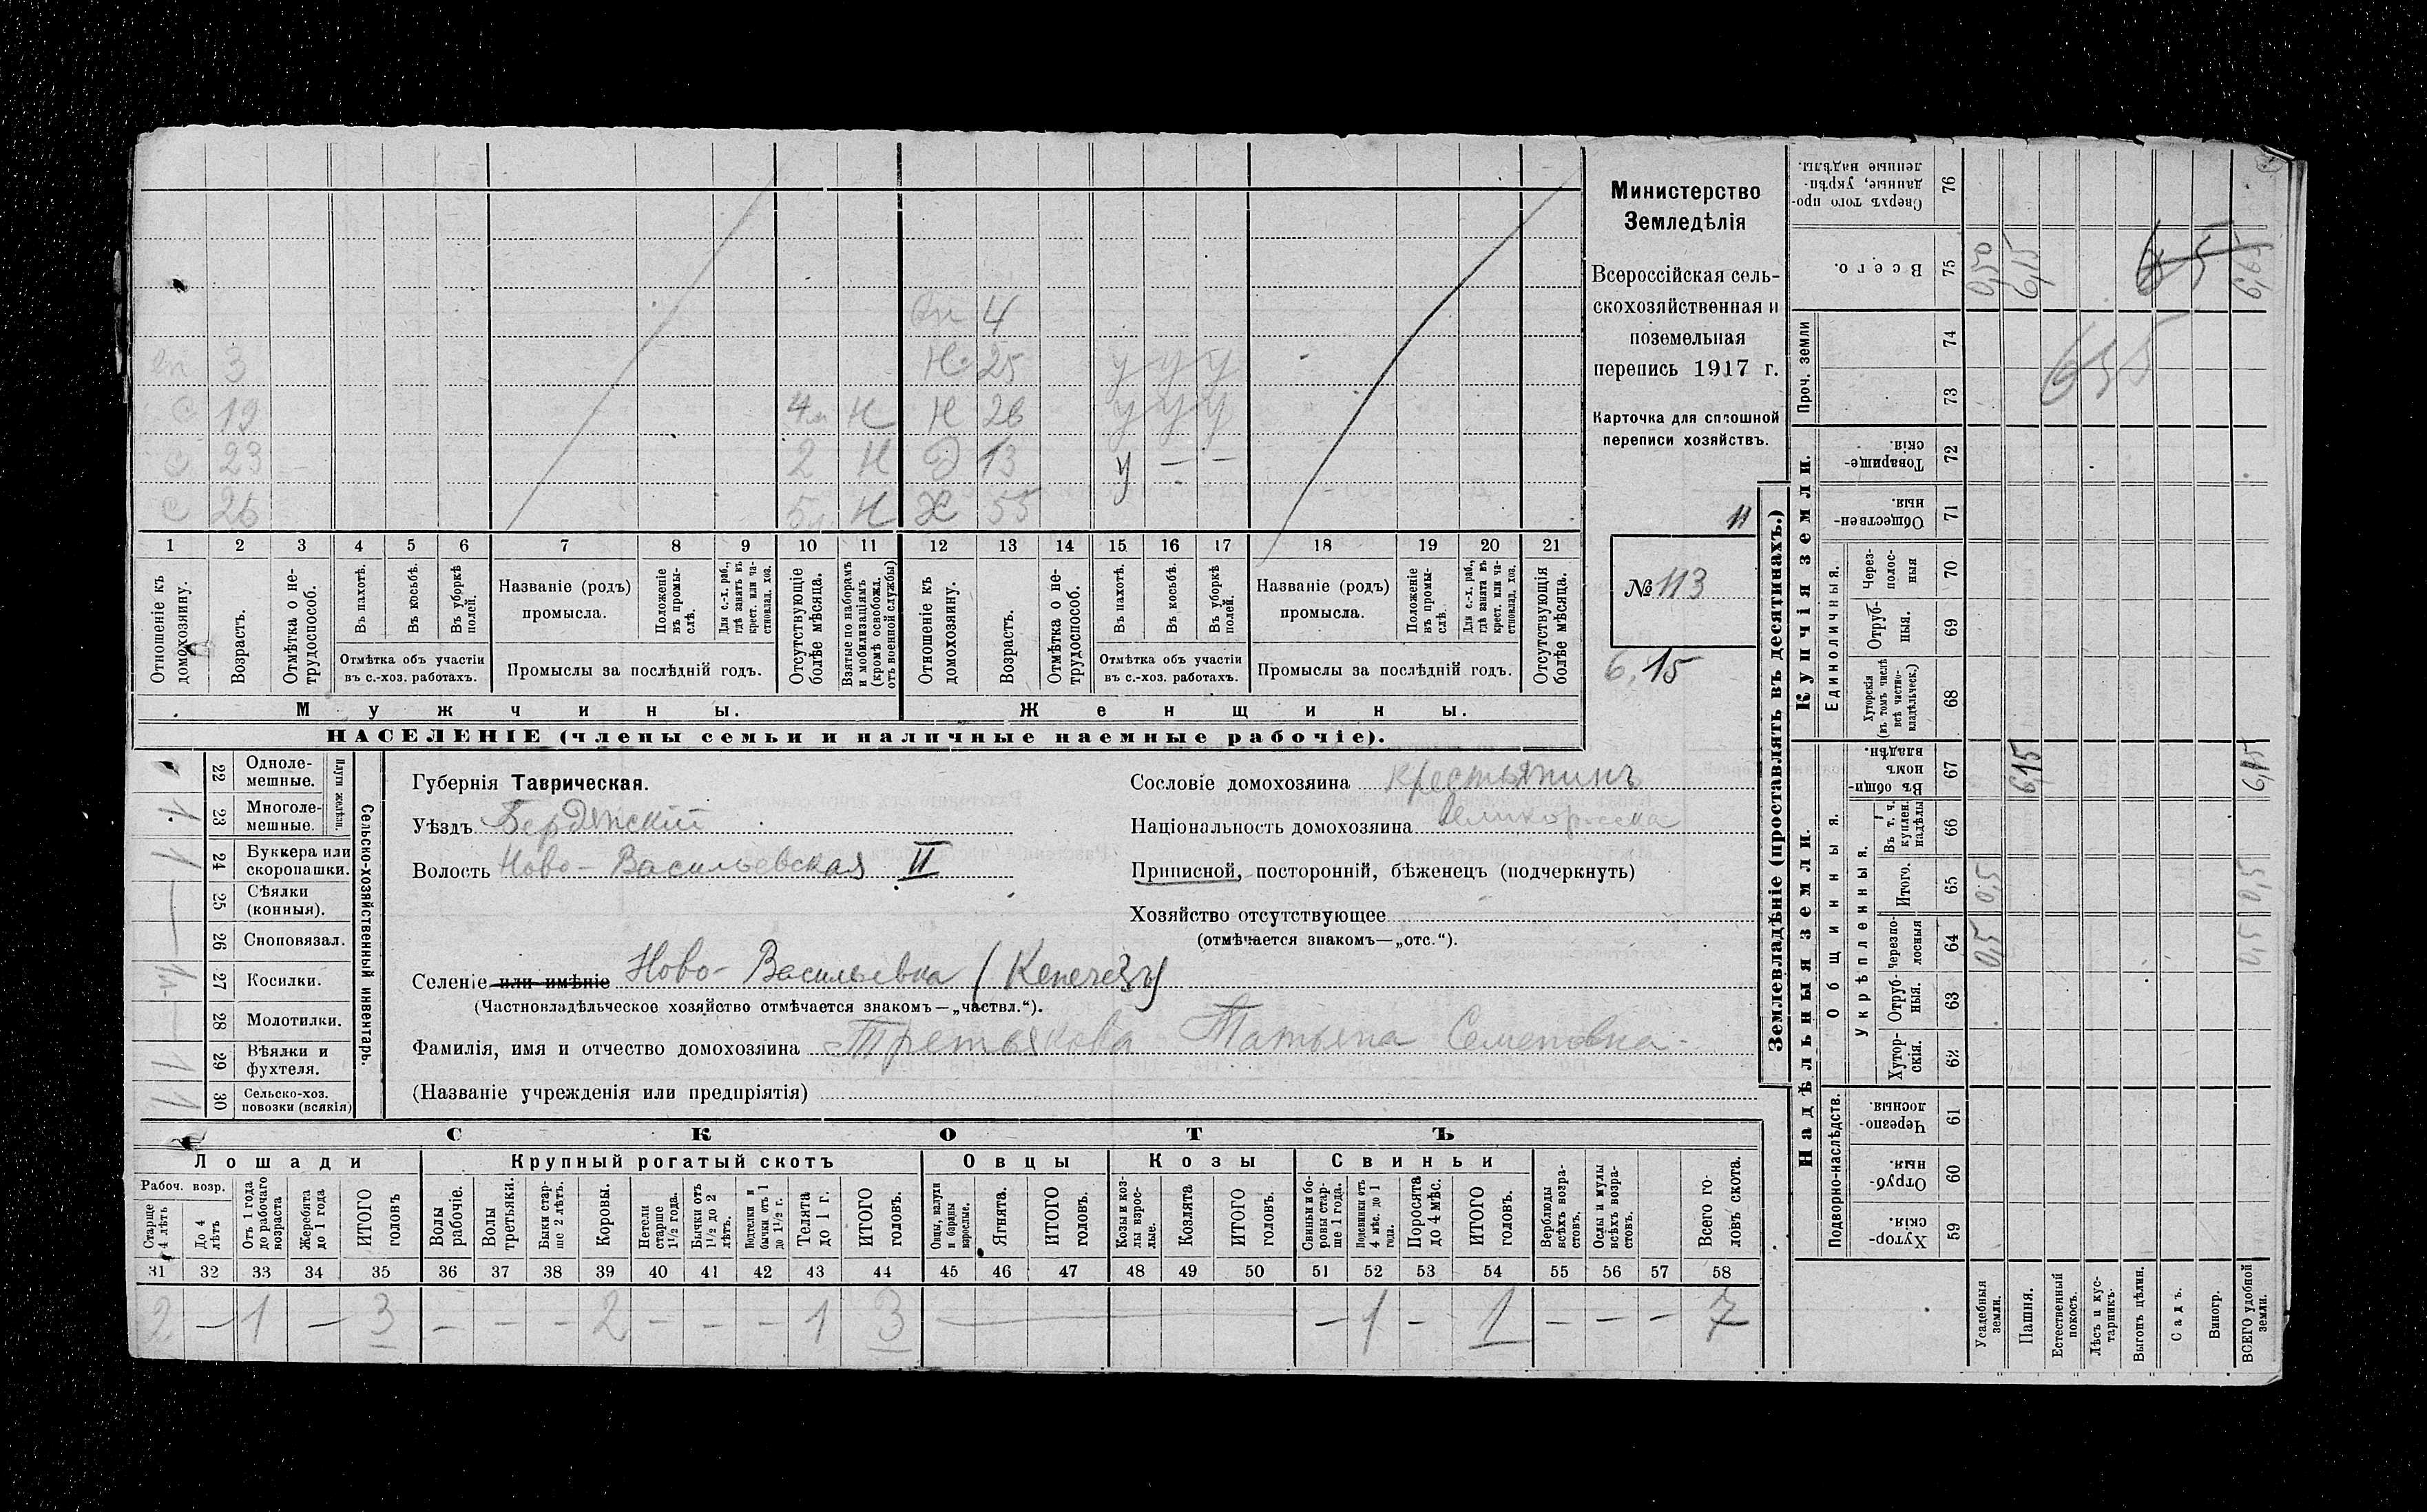 Министерство
Земледѣлія
Всероссійская сель-
скохозяйственная и
поземельная
перепись 1917 г.
Карточка для сплошной
переписи хозяйствъ.
11
№ 113
6,15
4
3 Н 25 у у у
С 19 4 Н Н 26 у у у
С 23 2 Н Д 13 у — —
С 26 5 Н Х 55
1 2 3 4 5 6 7 8 9 10 11 12 13 14 15 16 17 18 19 20 21
Отношеніе къ домохозяину.
Возрастъ.
Отмѣтка о не-трудоспособ.
Въ пахотѣ.
Въ косьбѣ.
Въ уборкѣ полей.
Отмѣтка объ участіи
въ с.-хоз. работахъ.
Названіе (родъ)
промысла.
Положеніе въ промы-слѣ.
Для с.-х. раб., гдѣ занятъ въ крест. или ча-стновлад. хоз.
Промыслы за послѣдній годъ.
Отсутствующіе болѣе мѣсяца.
Взятые по наборамъ и мобилизаціямъ (кромѣ освобожд. отъ военной службы)
Отношеніе къ домохозяину.
Возрастъ.
Отмѣтка о не-трудоспособ.
Въ пахотѣ.
Въ косьбѣ.
Въ уборкѣ полей.
Отмѣтка объ участіи
въ с.-хоз. работахъ.
Названіе (родъ)
промысла.
Положеніе въ промы-слѣ
Для с.-х. раб., гдѣ занята въ крест. или ча-стновлад. хоз.
Промыслы за послѣдній годъ.
Отсутствующія болѣе мѣсяца.
Мужчины. Женщины.
НАСЕЛЕНІЕ (члены семьи и наличные наемные рабочіе).
Сельско-хозяйственный инвентарь.
Плуги желѣзн.
22 Одноле-мешные.
1. 23 Многоле-мешные.
1 24 Буккера или скоропашки.
— 25 Сѣялки (конныя).
26 Сноповязал.
27 Косилки.
— 28 Молотилки.
1 29 Вѣялки и фухтеля.
1 30 Сельско-хоз. повозки (всякія)
Губернія Таврическая.
Уѣздъ Бердянскій
Волость Ново-Васильевская II
Сословіе домохозяина крестьянинъ
Національность домохозяина
Приписной, посторонній, бѣженецъ (подчеркнуть)
Хозяйство отсутствующее
(отмѣчается знакомъ—„отс.“).
Селеніе или имѣніе Ново-Васильевка
(Частновладѣльческое хозяйство отмѣчается знакомъ—„частвл.“).
Фамилія, имя и отчество домохозяина Третьякова Татьяна Семеновна
(Названіе учрежденія или предпріятія)
СКОТЪ
Лошади Крупный рогатый скотъ Овцы Козы Свиньи
Рабоч. возр.
Старше 4 лѣтъ
До 4 лѣтъ
Отъ 1 года до рабочаго возраста
Жеребята до 1 года
ИТОГО головъ
Волы рабочіе.
Волы третьяки.
Быки стар-ше 2 лѣтъ.
Коровы.
Нетели старше 1½ года.
Бычки отъ 1½ до 2 лѣтъ.
Подтелки и бычки отъ 1 до 1½ г.
Телята до 1 г.
ИТОГО головъ.
Овцы, валухи и бараны взрослые.
Ягнята.
ИТОГО головъ.
Козы и коз-лы взрос-лые.
Козлята
ИТОГО головъ.
Свиньи и бо-ровы стар-ше 1 года.
Подсвинки отъ 4 мѣс. до 1 года.
Поросята до 4 мѣс.
ИТОГО головъ.
Верблюды всѣхъ возра-стовъ.
Ослы и мулы всѣхъ возра-стовъ.
Всего го-ловъ скота.
31 32 33 34 35 36 37 38 39 40 41 42 43 44 45 46 47 48 49 50 51 52 53 54 55 56 57 58
2 — 1 — 3 — — — 2 — — — 1 3 — — 1 — 1 — — — 7
Землевладѣніе (проставлять въ десятинахъ.)
Надѣльныя земли. Купчія земли.
Подворно-наслѣдств.
Общинныя.
Укрѣпленныя.
Единоличныя.
Проч. земли
59 Хутор-скія.
60 Отруб-ныя.
61 Черезпо-лосныя.
62 Хутор-скія.
63 Отруб-ныя.
64 Черезпо-лосныя
65 Итого.
66 Въ т. ч. куплен. надѣлы
67 Въ общин-номъ владѣн.
68 Хуторскія (въ томъ числѣ всѣ частно-владѣльческ.)
69 Отруб-ныя.
70 Через-полос-ныя
71 Обществен-ныя.
72 Товарище-скія.
73
74
75 Всего.
76 Сверхъ того про-данные, укрѣп-ленные надѣлы.
Усадебныя земли. 0,5 0,5 0,50
Пашня. 6,15 6,15
Естественный покосъ.
655
Лѣсъ и кус-тарникъ.
Выгонъ цѣлин.
Садъ.
Виногр.
ВСЕГО удобной земли. 0,5 0,5 6,15 6,65